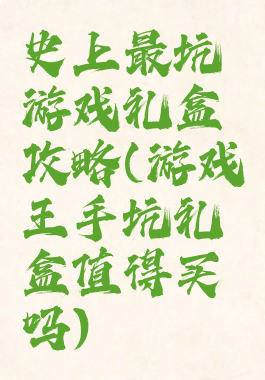 史上最坑
游戏礼盒
攻略(游戏
王手坑礼
盒值得买
吗)